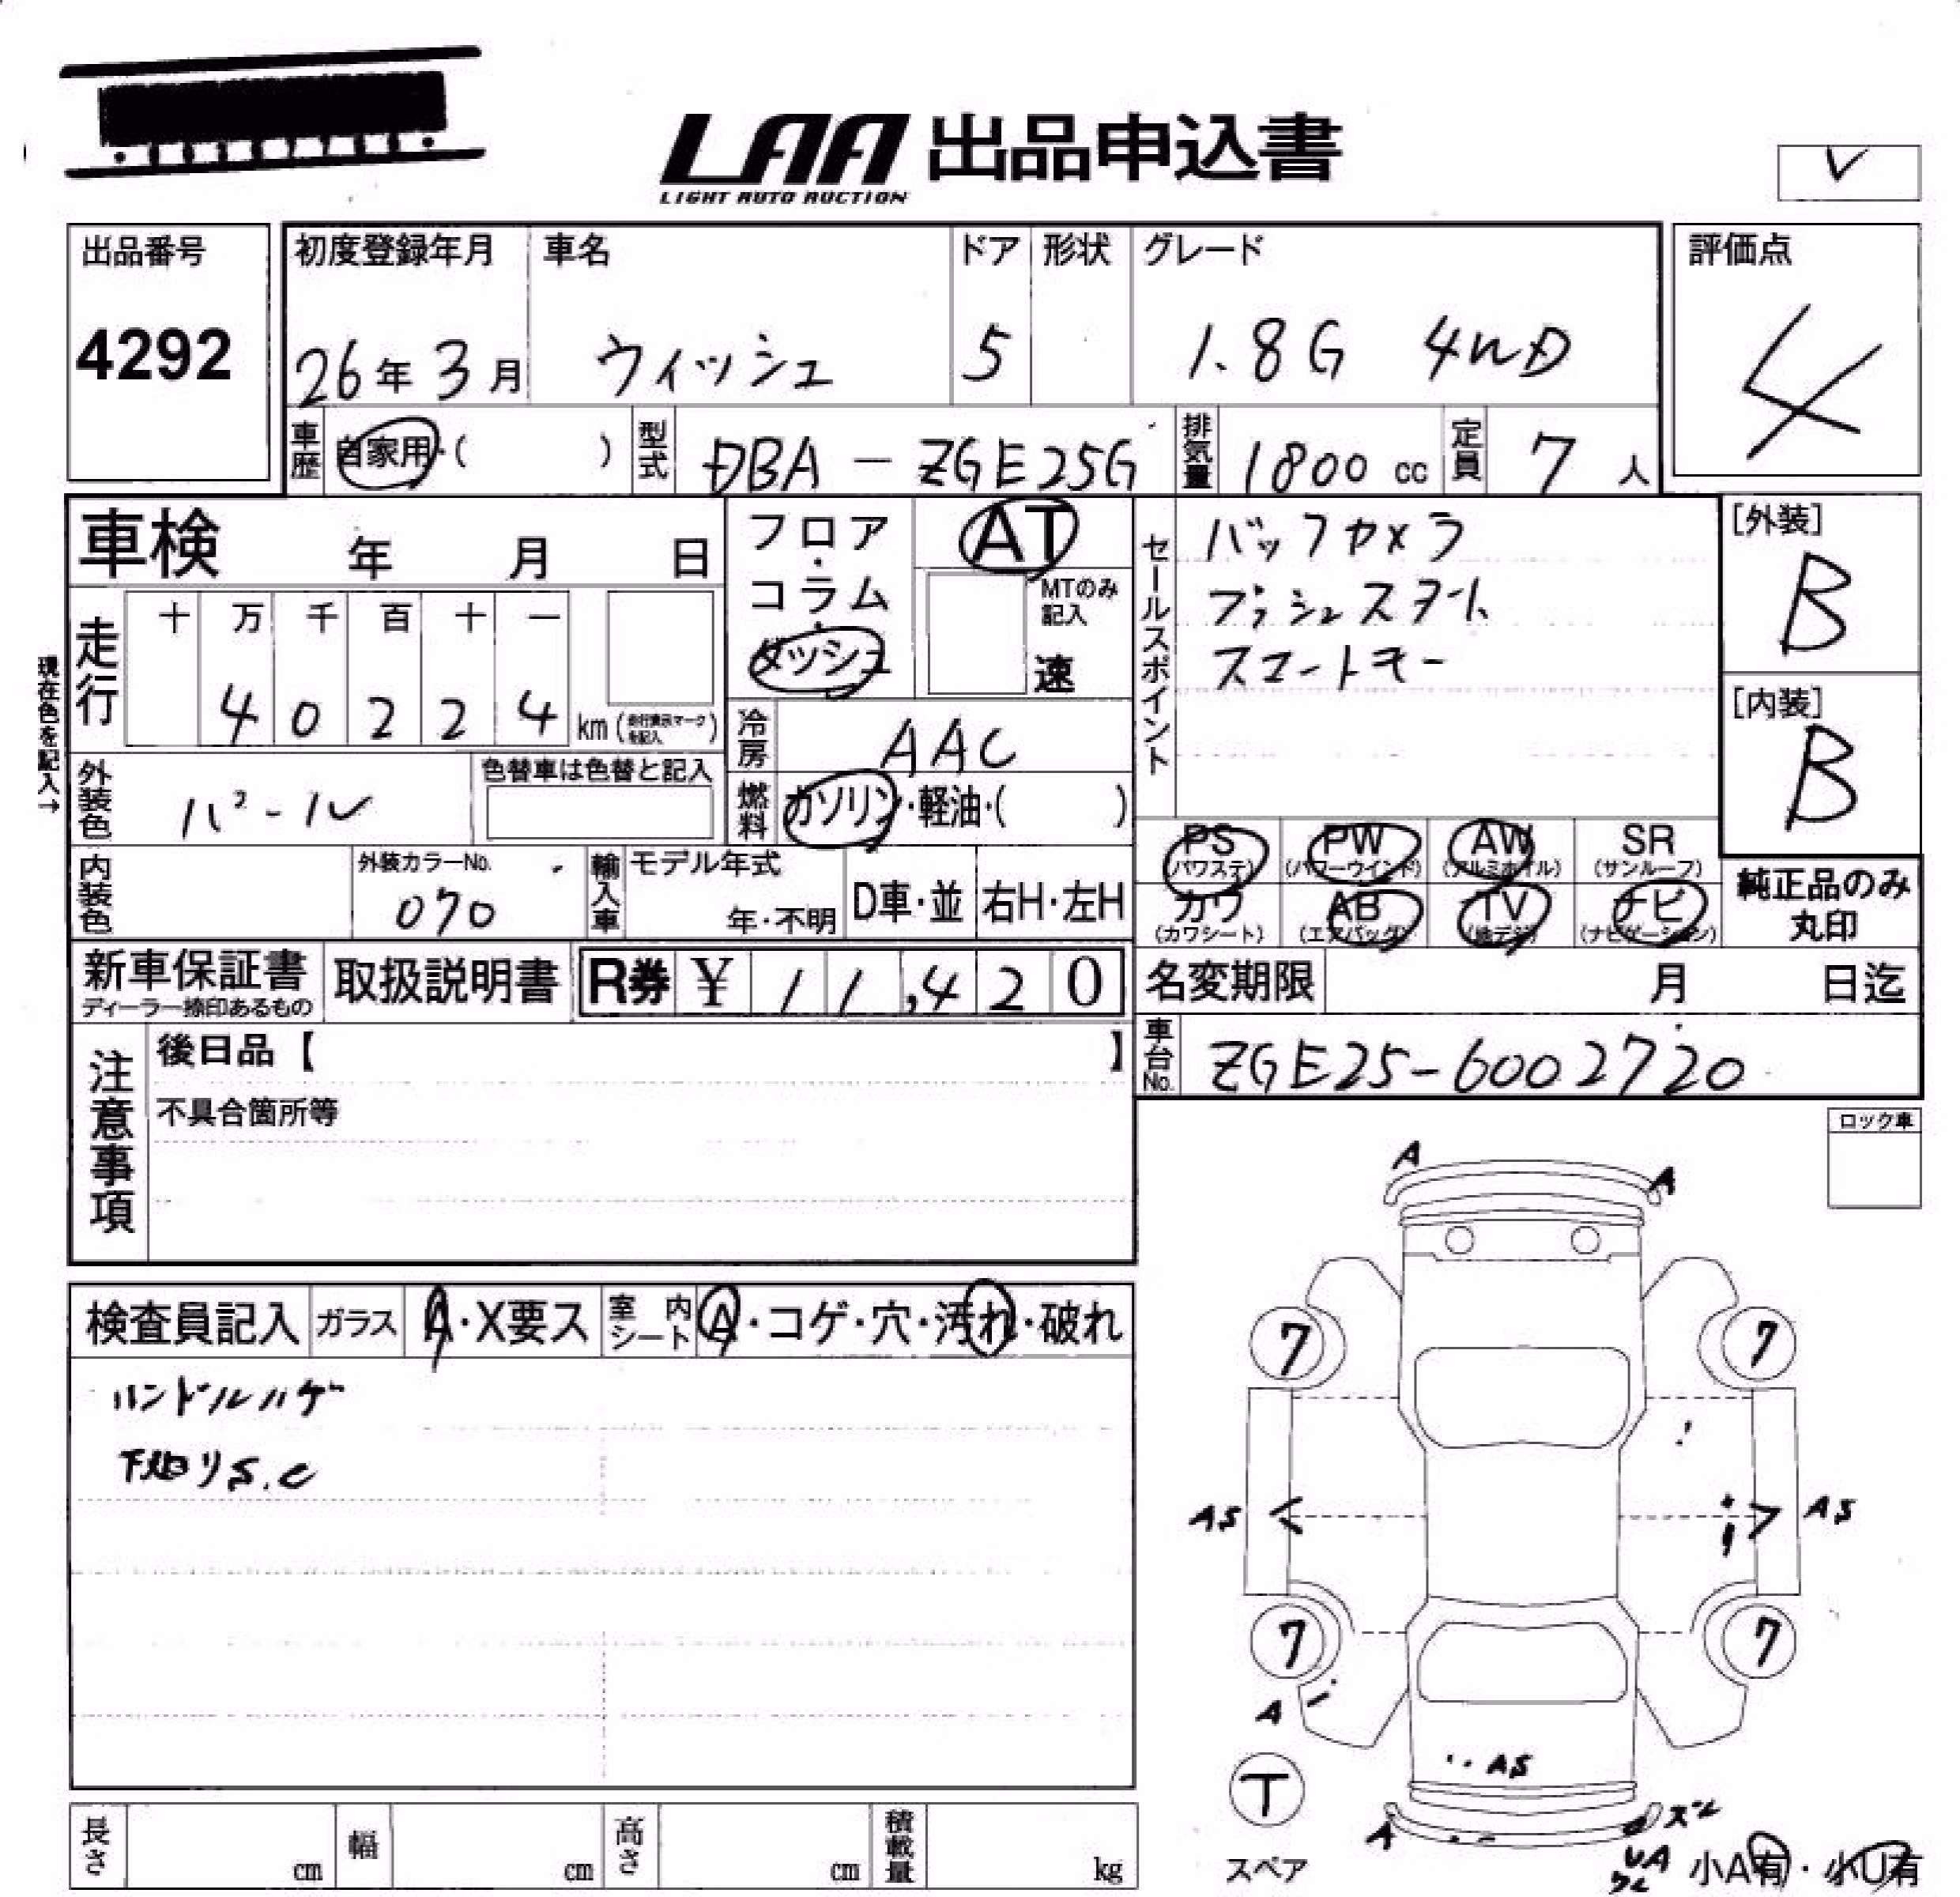 LAA 出品申込書
LIGHT AUTO AUCTION
出品番号
4292
初度登録年月
26年3月
車名
ウィッシュ
ドア
5
形状
グレード
1.8G 4WD
評価点
4
車歴
自家用・( )
型式
DBA-ZGE25G
排気量
1800 cc
定員
7 人
車検 年 月 日
フロア・コラム・ダッシュ
AT
MTのみ記入
速
セールスポイント
バックカメラ
プッシュスタート
スマートキー
[外装]
B
[内装]
B
現在色を記入→
走行
十 万 千 百 十 一
4 0 2 2 4 km(走行表示マークを記入)
冷房
AAC
外装色
パール
色替車は色替と記入
燃料
ガソリン・軽油・( )
PS (パワステ)
PW (パワーウインド)
AW (アルミホイル)
SR (サンルーフ)
カワ (カワシート)
AB (エアバッグ)
TV (地デジ)
ナビ (ナビゲーション)
純正品のみ丸印
内装色
外装カラーNo.
070
輸入車
モデル年式
年・不明
D車・並
右H・左H
新車保証書
ディーラー捺印あるもの
取扱説明書
R券 ¥ 11,420
名変期限 月 日迄
注意事項
後日品【 】
不具合箇所等
車台No.
ZGE25-6002720
ロック車
検査員記入
ガラス
A・X要ス
室内シート
A・コゲ・穴・汚れ・破れ
ハンドルハゲ
下回りS.C
A
A
7
7
AS
AS
7
7
A
AS
T
スペア
A
スレ
UA
ワレ
小A有・小U有
長さ cm
幅 cm
高さ cm
積載量 kg